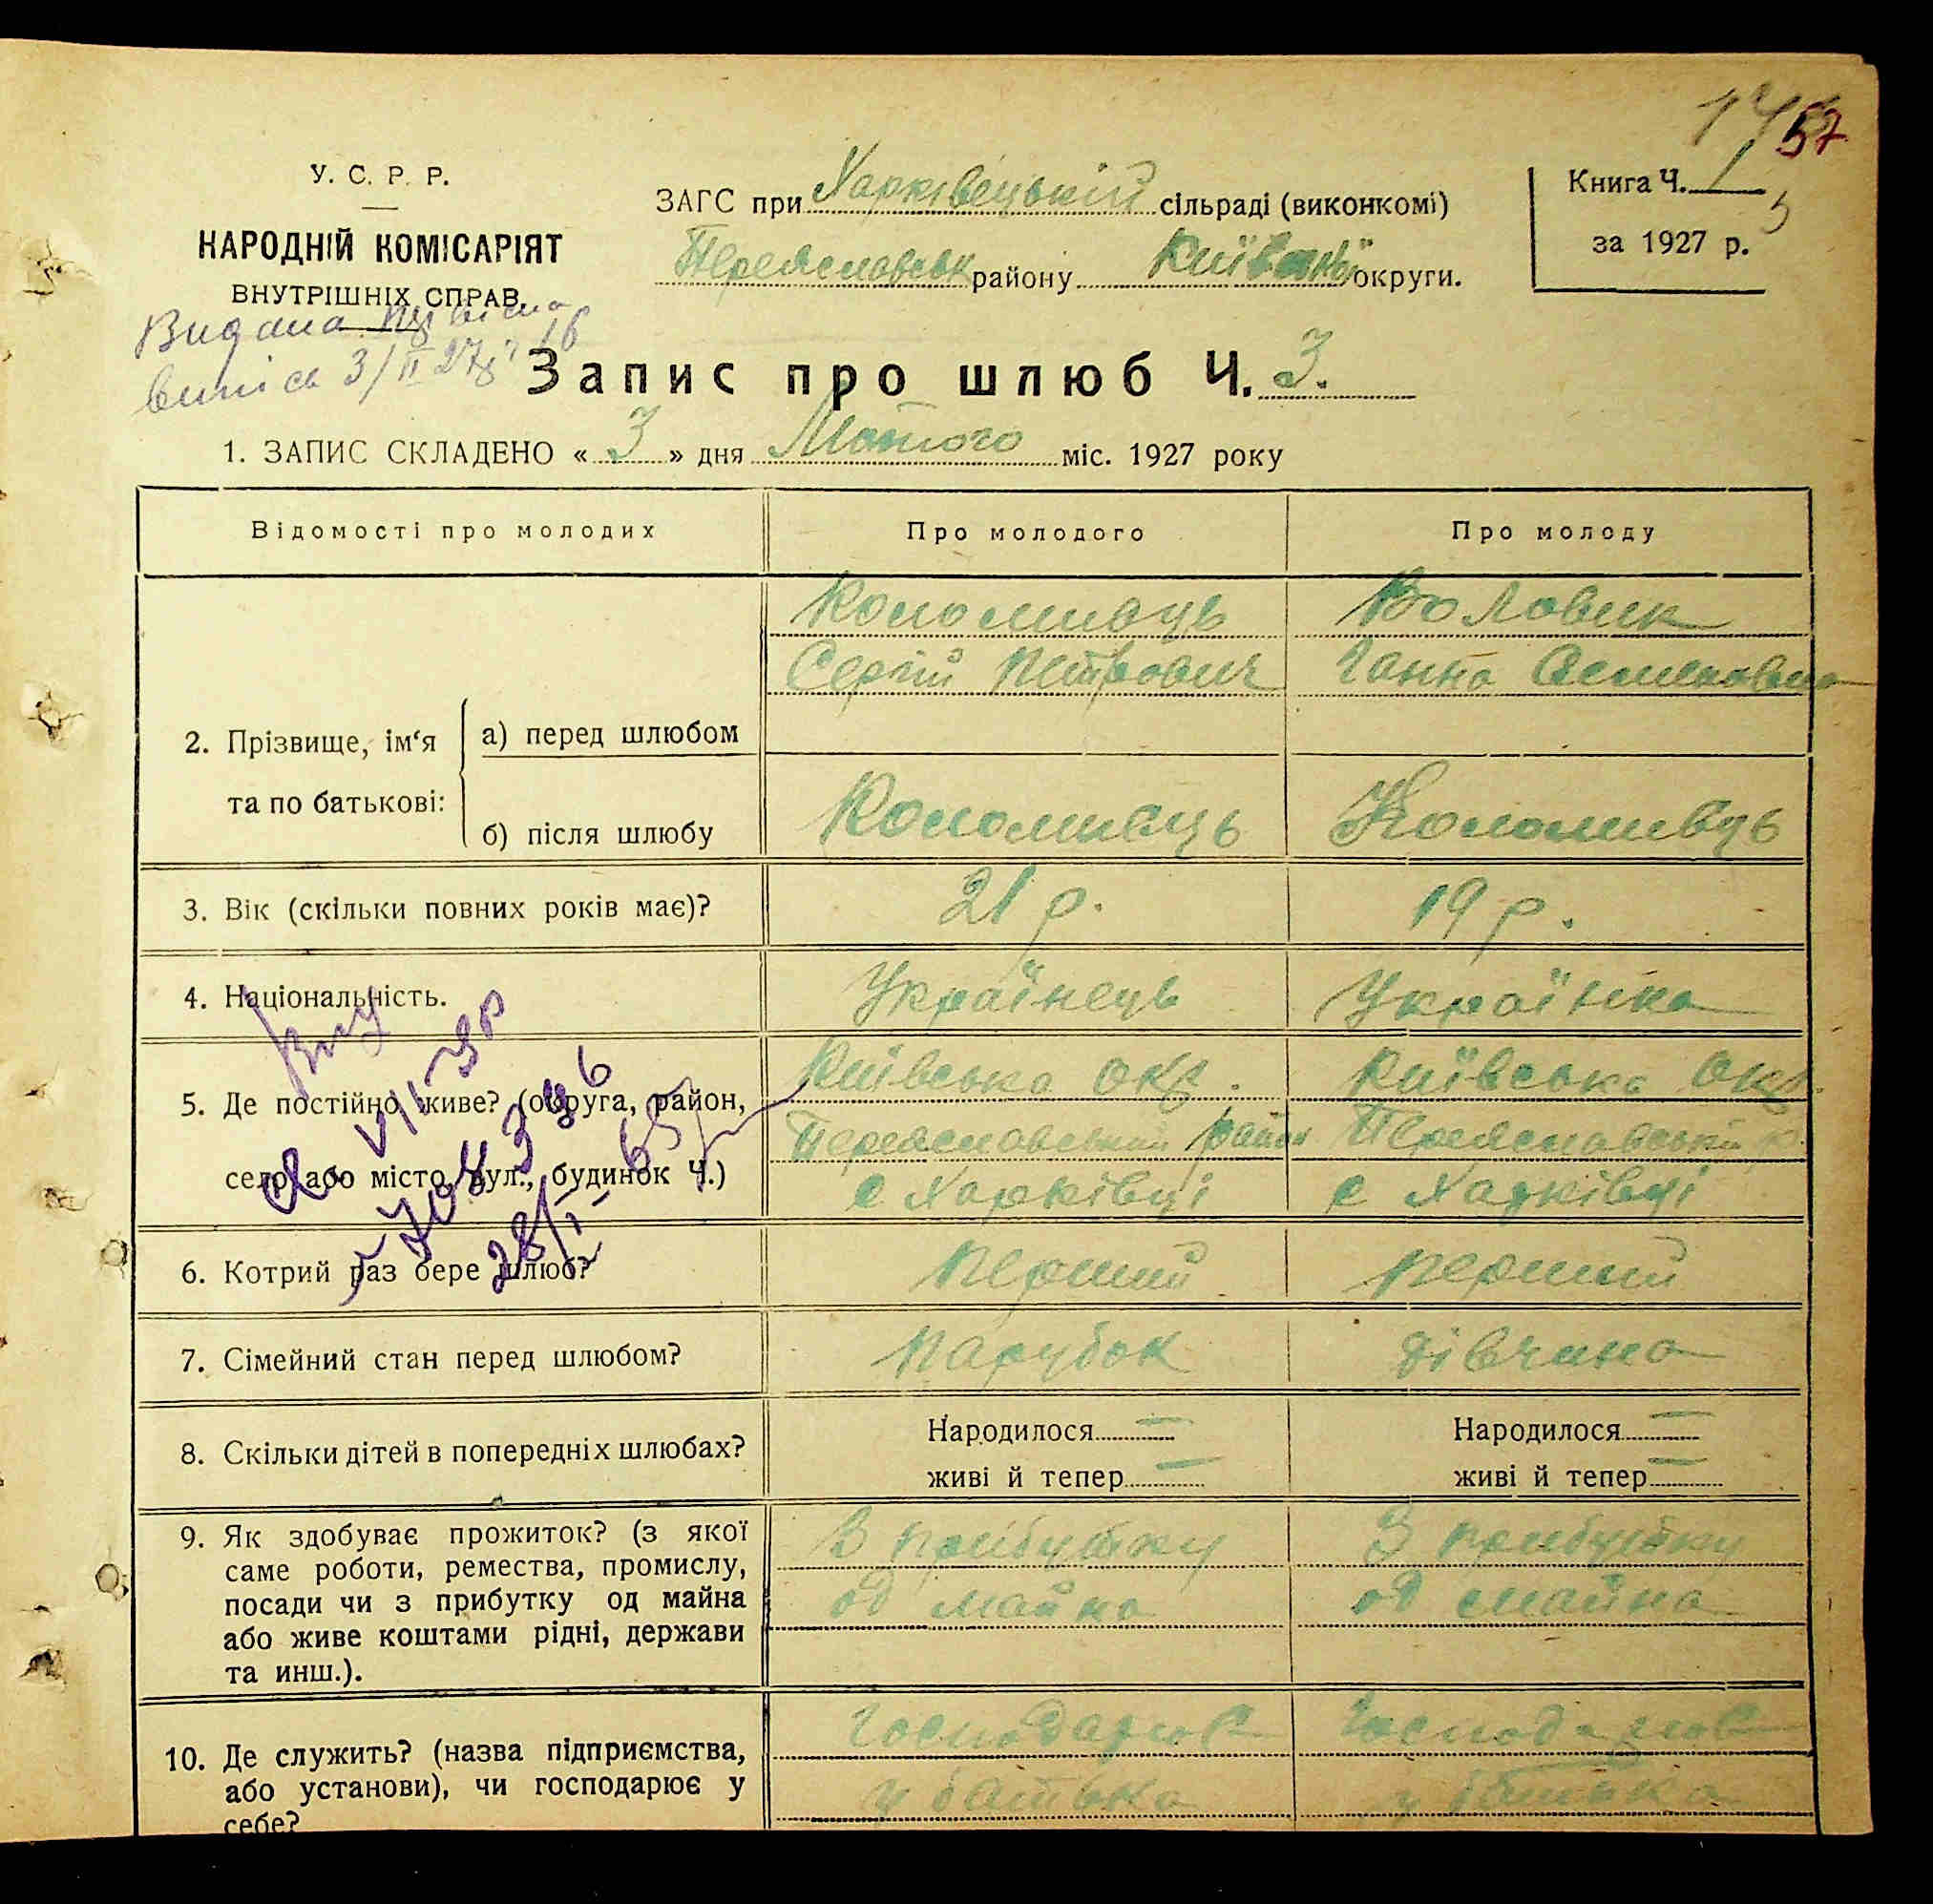 57
У. С. Р. Р.
НАРОДНІЙ КОМІСАРІЯТ
ВНУТРІШНІХ СПРАВ.
ЗАГС при Харківецькій сільраді (виконкомі)
Переяславськ району Київськ округи.
Книга Ч. 1
за 1927 р.
Видана
випись 3/II 27р
Запис про шлюб Ч. 3.
1. ЗАПИС СКЛАДЕНО « 3 » дня Лютого міс. 1927 року
Відомості про молодих Про молодого Про молоду
2. Прізвище, ім‘я та по батькові:
а) перед шлюбом
Коломивць Воловик
Сергій Петрович Ганна Семеновна
б) після шлюбу Коломивць Коломивць
3. Вік (скільки повних років має)? 21 р. 19 р.
4. Національність. Українець Українка
5. Де постійно живе? (округа, район,
село або місто, вул., будинок Ч.)
Київська окр. Київська окр.
Переяславський район Переяславській р.
с Харківці с Харківці
6. Котрий раз бере шлюб? Перший перший
7. Сімейний стан перед шлюбом? Парубок дівчина
8. Скільки дітей в попередніх шлюбах? Народилося — Народилося —
живі й тепер — живі й тепер —
9. Як здобуває прожиток? (з якої
саме роботи, ремества, промислу,
посади чи з прибутку од майна
або живе коштами рідні, держави
та инш.).
З прибутку З прибутку
од майна од майна
10. Де служить? (назва підприємства,
або установи), чи господарює у
себе?
Господарює Господарює
у батька у батька